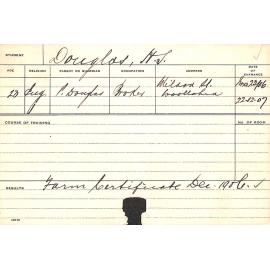 STUDENT Douglas, H.S.
AGE RELIGION PARENT OR GUARDIAN OCCUPATION ADDRESS DATE OF ENTRANCE
Wilson St.
23 Eng P. Douglas Woollahra
22-12-07
COURSE OF TRAINING No. OF ROOM
RESULTS Farm Certificate Dec. 1906.